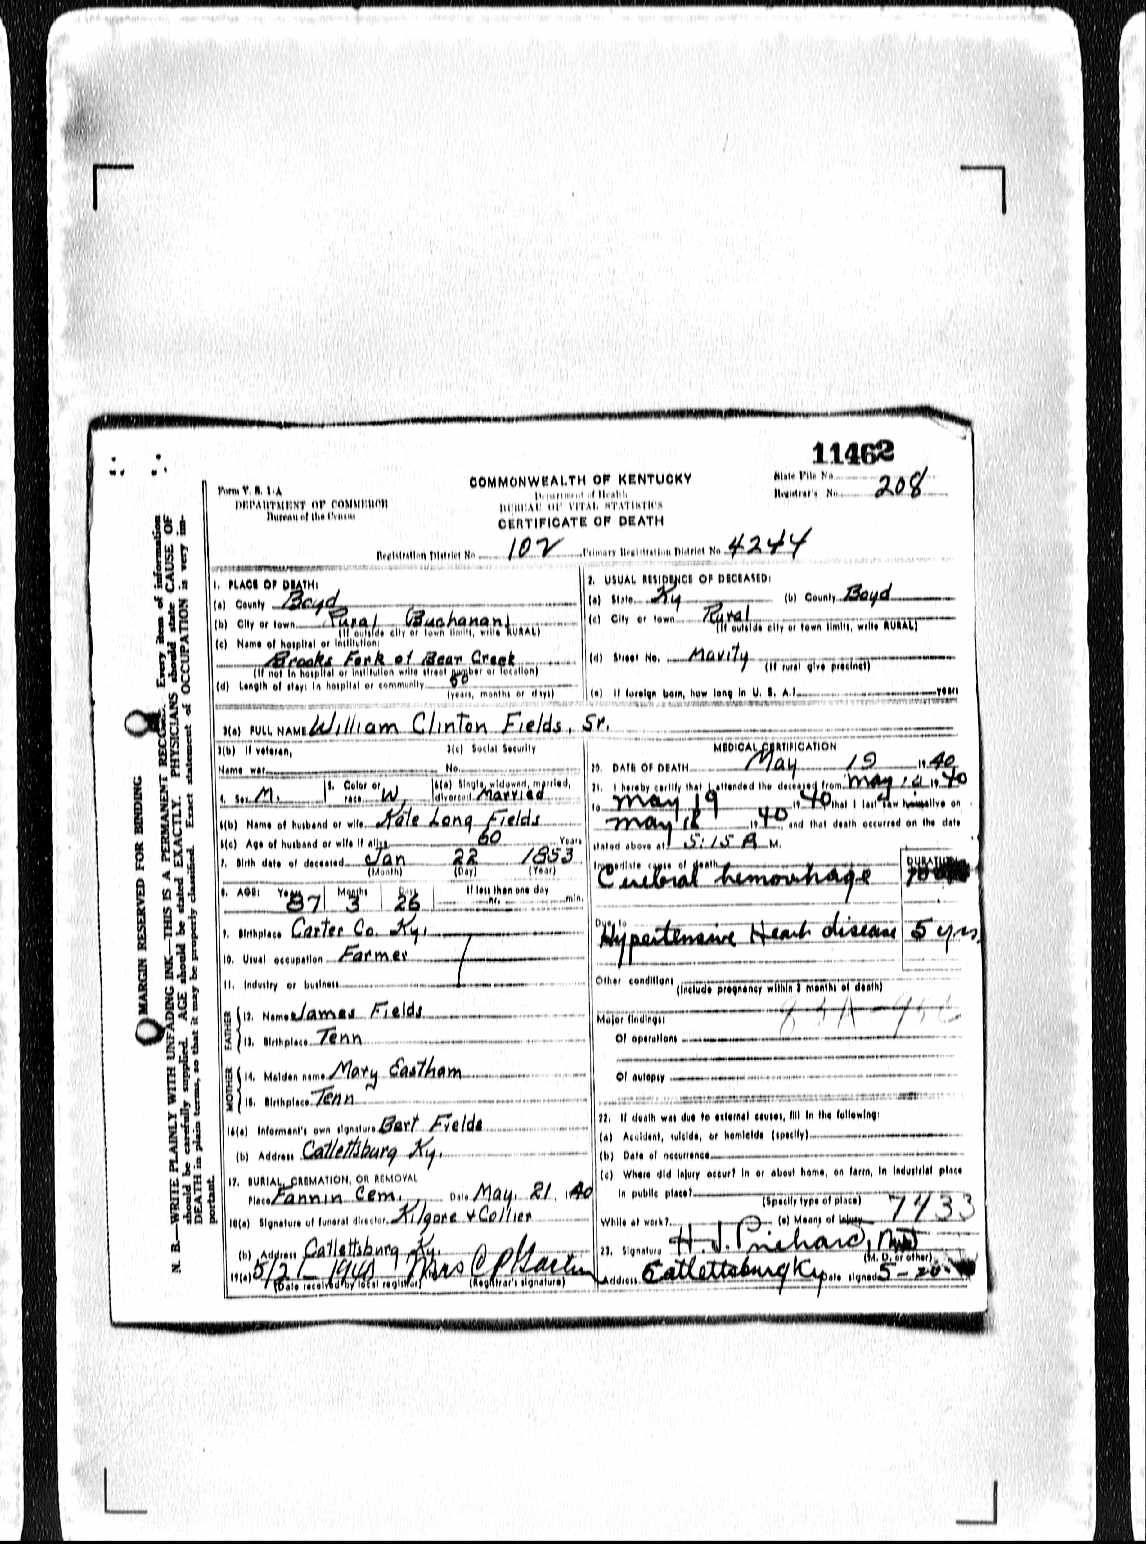 11462
Form V. S. 1-A
DEPARTMENT OF COMMERCE
Bureau of the Census
COMMONWEALTH OF KENTUCKY
Department of Health
BUREAU OF VITAL STATISTICS
CERTIFICATE OF DEATH
State File No.
Registrar's No. 208
Registration District No. 102 Primary Registration District No. 4244
MARGIN RESERVED FOR BINDING
N. B.—WRITE PLAINLY WITH UNFADING INK—THIS IS A PERMANENT RECORD. Every item of information
should be carefully supplied. AGE should be stated EXACTLY. PHYSICIANS should state CAUSE OF
DEATH in plain terms, so that it may be properly classified. Exact statement of OCCUPATION is very im-
portant.
1. PLACE OF DEATH:
(a) County Boyd
(b) City or town Rural (Buchanan)
(If outside city or town limits, write RURAL)
(c) Name of hospital or institution:
Brooks Fork of Bear Creek
(If not in hospital or institution write street number or location)
(d) Length of stay: In hospital or community
(years, months or days)
2. USUAL RESIDENCE OF DECEASED:
(a) State Ky (b) County Boyd
(c) City or town Rural
(If outside city or town limits, write RURAL)
(d) Street No. Mavity (If rural give precinct)
(e) If foreign born, how long in U. S. A.? years
3(a) FULL NAME William Clinton Fields, Sr.
3(b) If veteran, 3(c) Social Security
Name war No.
4. Sex M. 5. Color or race W. 6(a) Single, widowed, married, divorced Married
6(b) Name of husband or wife Kate Long Fields
6(c) Age of husband or wife if alive 60 Years
7. Birth date of deceased Jan 22 1853
(Month) (Day) (Year)
8. AGE: Years Months Days If less than one day
87 3 26 hr. min.
9. Birthplace Carter Co. Ky.
10. Usual occupation Farmer
11. Industry or business
FATHER
12. Name James Fields
13. Birthplace Tenn
MOTHER
14. Maiden name Mary Eastham
15. Birthplace Tenn
16(a) Informant's own signature Bert Fields
(b) Address Catlettsburg Ky.
17. BURIAL, CREMATION, OR REMOVAL
Place Fannin Cem. Date May 21, 1940
18(a) Signature of funeral director Kilgore & Collier
(b) Address Catlettsburg Ky.
19(a) 5/21-1940 Mrs C P
(Date received by local registrar) (Registrar's signature)
MEDICAL CERTIFICATION
20. DATE OF DEATH May 19 1940
21. I hereby certify that I attended the deceased from May 1940
to May 19 1940 that I last saw alive on
May 18 1940, and that death occurred on the date
stated above at 5:15 A M.
Immediate cause of death DURATION
Cerebral hemorrhage
Due to
Hypertensive Heart disease 5 yrs.
Other conditions
(Include pregnancy within 3 months of death)
Major findings:
Of operations
Of autopsy
22. If death was due to external causes, fill in the following:
(a) Accident, suicide, or homicide (specify)
(b) Date of occurrence
(c) Where did injury occur? In or about home, on farm, in industrial place
in public place?
(Specify type of place)
7433
While at work? (e) Means of injury
23. Signature H. J. Prichard, MD
(M. D. or other)
Address Catlettsburg Ky Date signed 5-20-